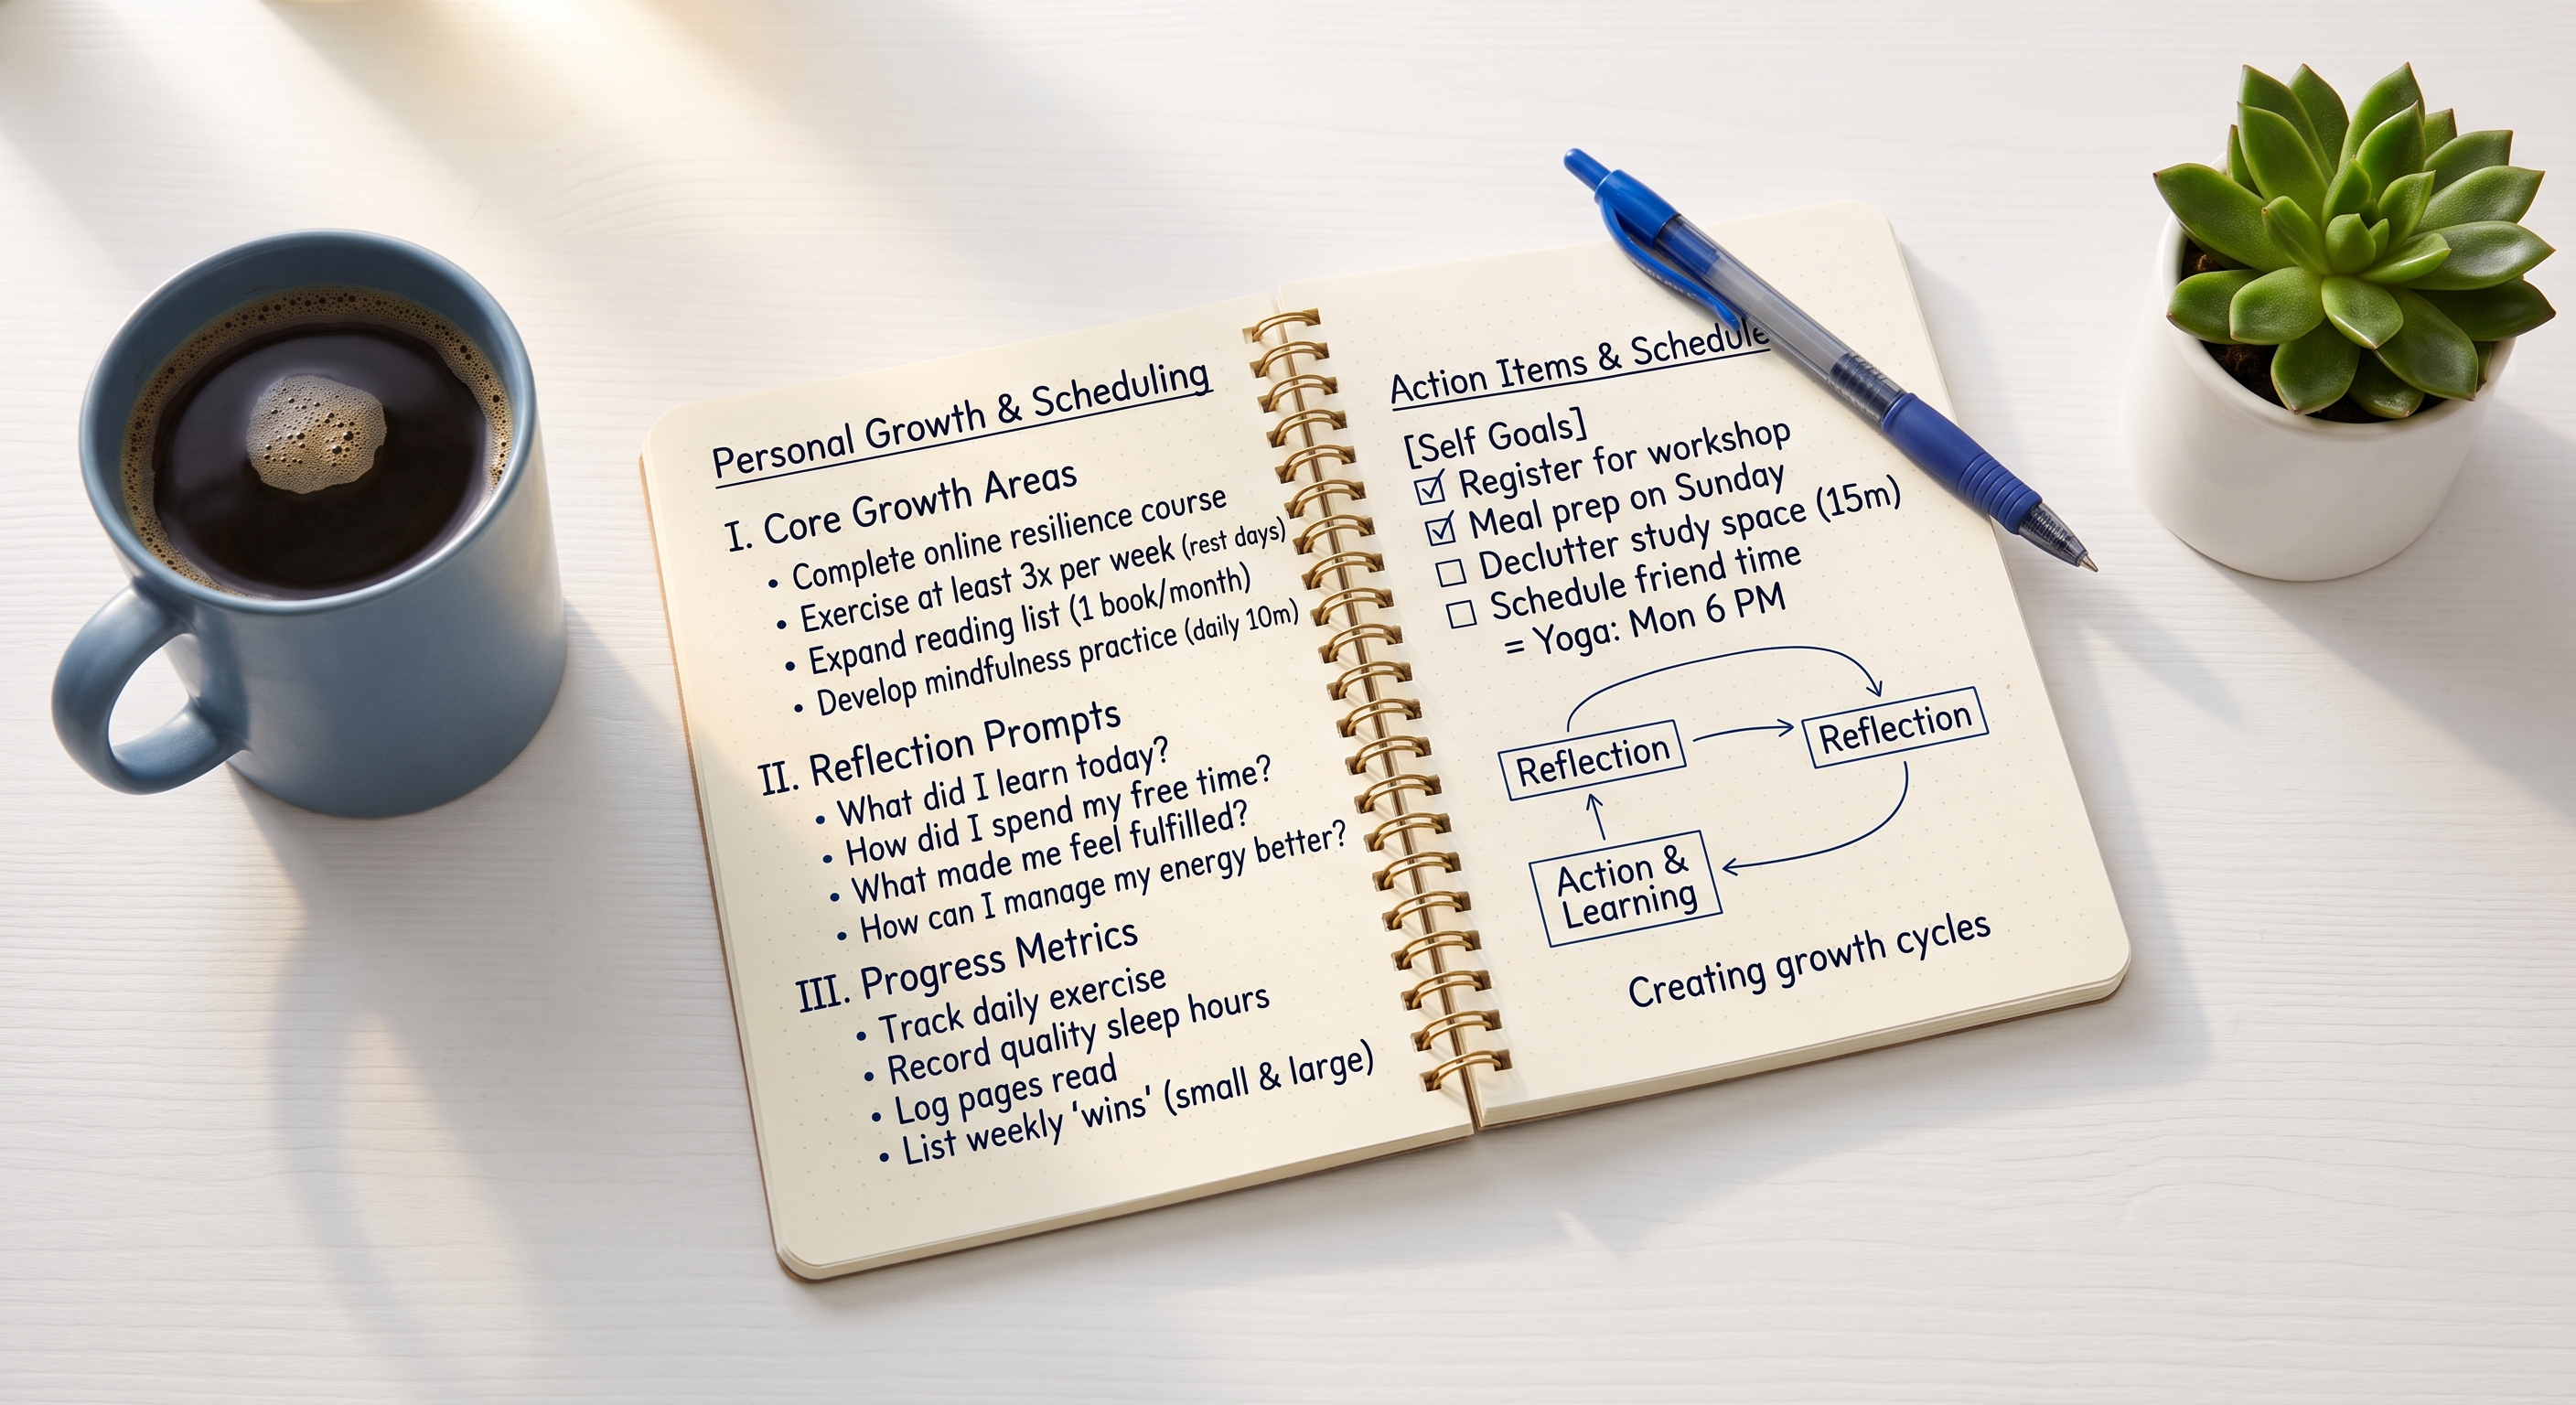 Personal Growth & Scheduling
I. Core Growth Areas
• Complete online resilience course
• Exercise at least 3x per week (rest days)
• Expand reading list (1 book/month)
• Develop mindfulness practice (daily 10m)
II. Reflection Prompts
• What did I learn today?
• How did I spend my free time?
• What made me feel fulfilled?
• How can I manage my energy better?
III. Progress Metrics
• Track daily exercise
• Record quality sleep hours
• Log pages read
• List weekly ‘wins’ (small & large)
Action Items & Schedule
[Self Goals]
☑ Register for workshop
☑ Meal prep on Sunday
☐ Declutter study space (15m)
☐ Schedule friend time
= Yoga: Mon 6 PM
Reflection
Reflection
Action &
Learning
Creating growth cycles